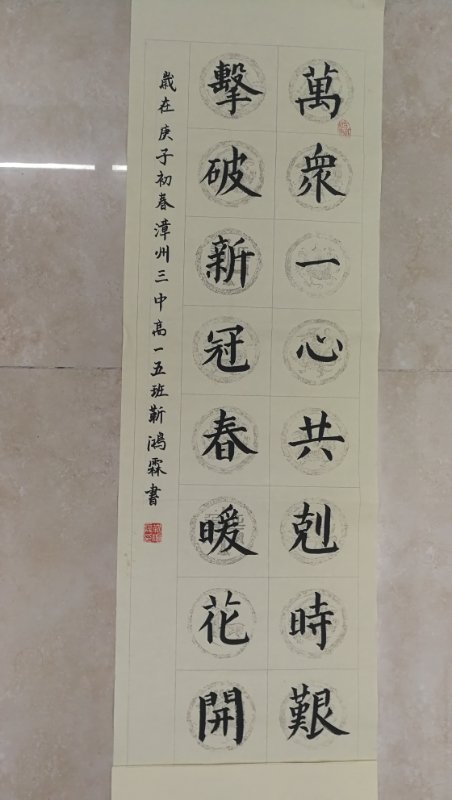 萬眾一心共剋時艱
擊破新冠春暖花開
歲在庚子初春漳州三中高一五班靳鴻霖書